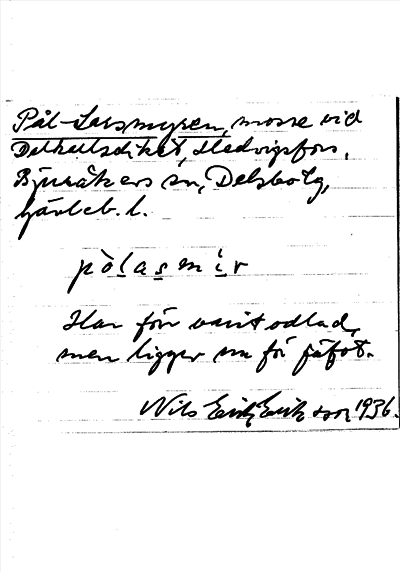 Pål-Larsmyren, mosse vid
Delkeelsdiket, Hedvigsfors,
Bjuråkers sn, Delsbo tg,
Gävleb. l.
pòlasmir
Har förr varit odlad,
men ligger nu för fäfot.
Nils Erik Eriksson 1936.